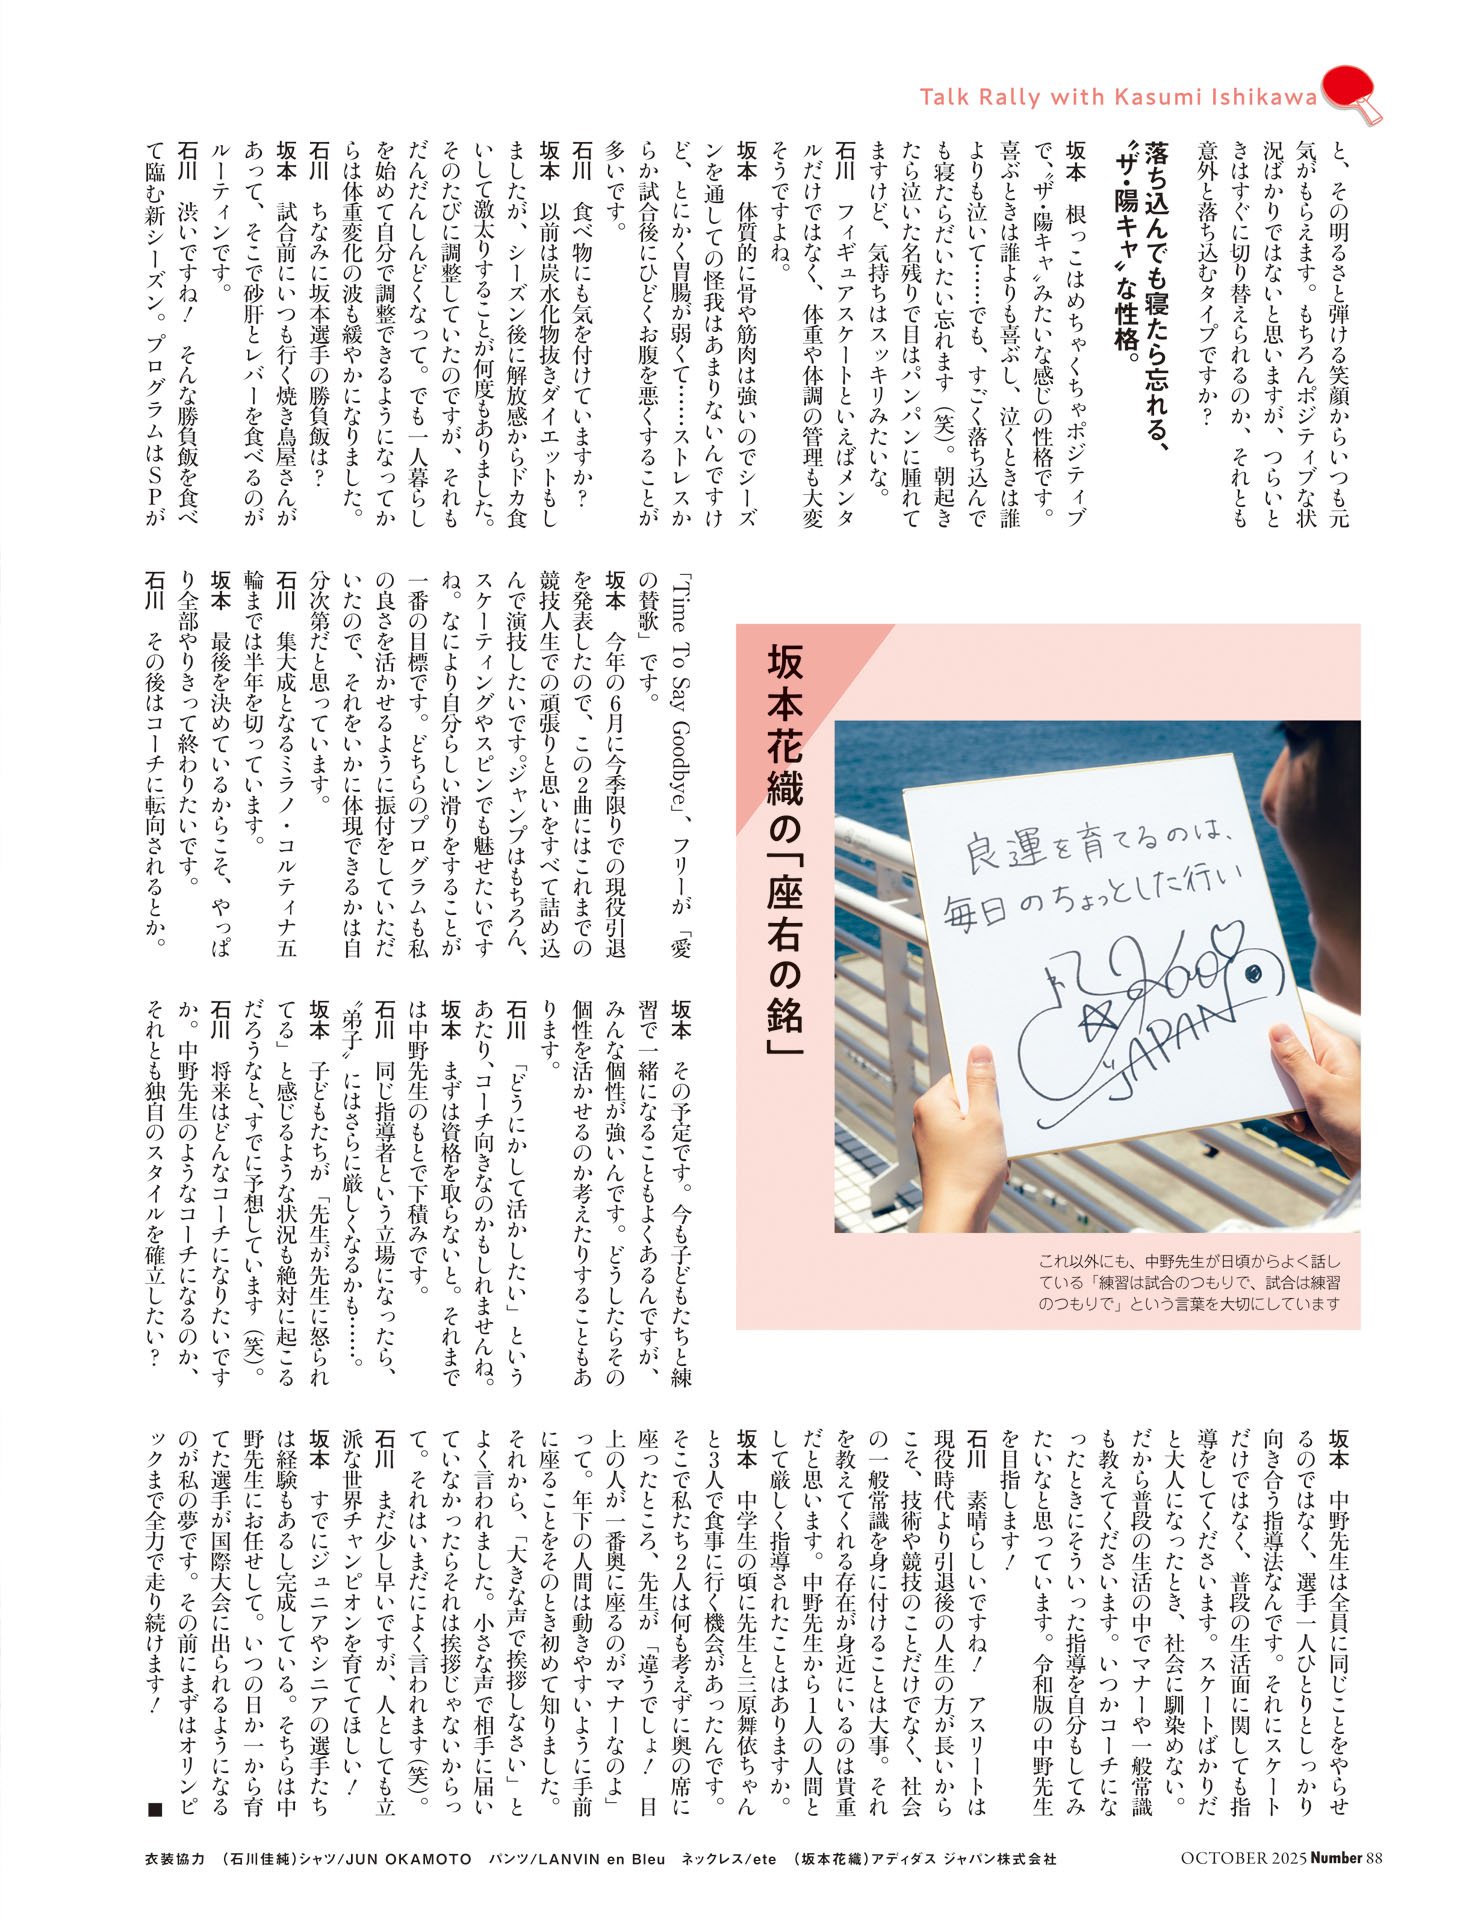 Talk Rally with Kasumi Ishikawa
と、その明るさと弾ける笑顔からいつも元
気がもらえます。もちろんポジティブな状
況ばかりではないと思いますが、つらいと
きはすぐに切り替えられるのか、それとも
意外と落ち込むタイプですか?
落ち込んでも寝たら忘れる、
〝ザ・陽キャ〟な性格。
坂本 根っこはめちゃくちゃポジティブ
で、〝ザ・陽キャ〟みたいな感じの性格です。
喜ぶときは誰よりも喜ぶし、泣くときは誰
よりも泣いて……でも、すごく落ち込んで
も寝たらだいたい忘れます(笑)。朝起き
たら泣いた名残りで目はパンパンに腫れて
ますけど、気持ちはスッキリみたいな。
石川 フィギュアスケートといえばメンタ
ルだけではなく、体重や体調の管理も大変
そうですよね。
坂本 体質的に骨や筋肉は強いのでシーズ
ンを通しての怪我はあまりないんですけ
ど、とにかく胃腸が弱くて……ストレスか
らか試合後にひどくお腹を悪くすることが
多いです。
石川 食べ物にも気を付けていますか?
坂本 以前は炭水化物抜きダイエットもし
ましたが、シーズン後に解放感からドカ食
いして激太りすることが何度もありました。
そのたびに調整していたのですが、それも
だんだんしんどくなって。でも一人暮らし
を始めて自分で調整できるようになってか
らは体重変化の波も緩やかになりました。
石川 ちなみに坂本選手の勝負飯は?
坂本 試合前にいつも行く焼き鳥屋さんが
あって、そこで砂肝とレバーを食べるのが
ルーティンです。
石川 渋いですね! そんな勝負飯を食べ
て臨む新シーズン。プログラムはSPが
「Time To Say Goodbye」、フリーが「愛
の賛歌」です。
坂本 今年の6月に今季限りでの現役引退
を発表したので、この2曲にはこれまでの
競技人生での頑張りと思いをすべて詰め込
んで演技したいです。ジャンプはもちろん、
スケーティングやスピンでも魅せたいです
ね。なにより自分らしい滑りをすることが
一番の目標です。どちらのプログラムも私
の良さを活かせるように振付をしていただ
いたので、それをいかに体現できるかは自
分次第だと思っています。
石川 集大成となるミラノ・コルティナ五
輪までは半年を切っています。
坂本 最後を決めているからこそ、やっぱ
り全部やりきって終わりたいです。
石川 その後はコーチに転向されるとか。
坂本花織の「座右の銘」
良運を育てるのは、
毎日のちょっとした行い
JAPAN
これ以外にも、中野先生が日頃からよく話し
ている「練習は試合のつもりで、試合は練習
のつもりで」という言葉を大切にしています
坂本 その予定です。今も子どもたちと練
習で一緒になることもよくあるんですが、
みんな個性が強いんです。どうしたらその
個性を活かせるのか考えたりすることもあ
ります。
石川 「どうにかして活かしたい」という
あたり、コーチ向きなのかもしれませんね。
坂本 まずは資格を取らないと。それまで
は中野先生のもとで下積みです。
石川 同じ指導者という立場になったら、
〝弟子〟にはさらに厳しくなるかも……。
坂本 子どもたちが「先生が先生に怒られ
てる」と感じるような状況も絶対に起こる
だろうなと、すでに予想しています(笑)。
石川 将来はどんなコーチになりたいです
か。中野先生のようなコーチになるのか、
それとも独自のスタイルを確立したい?
坂本 中野先生は全員に同じことをやらせ
るのではなく、選手一人ひとりとしっかり
向き合う指導法なんです。それにスケート
だけではなく、普段の生活面に関しても指
導をしてくださいます。スケートばかりだ
と大人になったとき、社会に馴染めない。
だから普段の生活の中でマナーや一般常識
も教えてくださいます。いつかコーチにな
ったときにそういった指導を自分もしてみ
たいなと思っています。令和版の中野先生
を目指します!
石川 素晴らしいですね! アスリートは
現役時代より引退後の人生の方が長いから
こそ、技術や競技のことだけでなく、社会
の一般常識を身に付けることは大事。それ
を教えてくれる存在が身近にいるのは貴重
だと思います。中野先生から1人の人間と
して厳しく指導されたことはありますか。
坂本 中学生の頃に先生と三原舞依ちゃん
と3人で食事に行く機会があったんです。
そこで私たち2人は何も考えずに奥の席に
座ったところ、先生が「違うでしょ! 目
上の人が一番奥に座るのがマナーなのよ」
って。年下の人間は動きやすいように手前
に座ることをそのとき初めて知りました。
それから、「大きな声で挨拶しなさい」と
よく言われました。小さな声で相手に届い
ていなかったらそれは挨拶じゃないからっ
て。それはいまだによく言われます(笑)。
石川 まだ少し早いですが、人としても立
派な世界チャンピオンを育ててほしい!
坂本 すでにジュニアやシニアの選手たち
は経験もあるし完成している。そちらは中
野先生にお任せして。いつの日か一から育
てた選手が国際大会に出られるようになる
のが私の夢です。その前にまずはオリンピ
ックまで全力で走り続けます! ■
衣装協力 (石川佳純)シャツ/JUN OKAMOTO パンツ/LANVIN en Bleu ネックレス/ete (坂本花織)アディダス ジャパン株式会社
OCTOBER 2025 Number 88